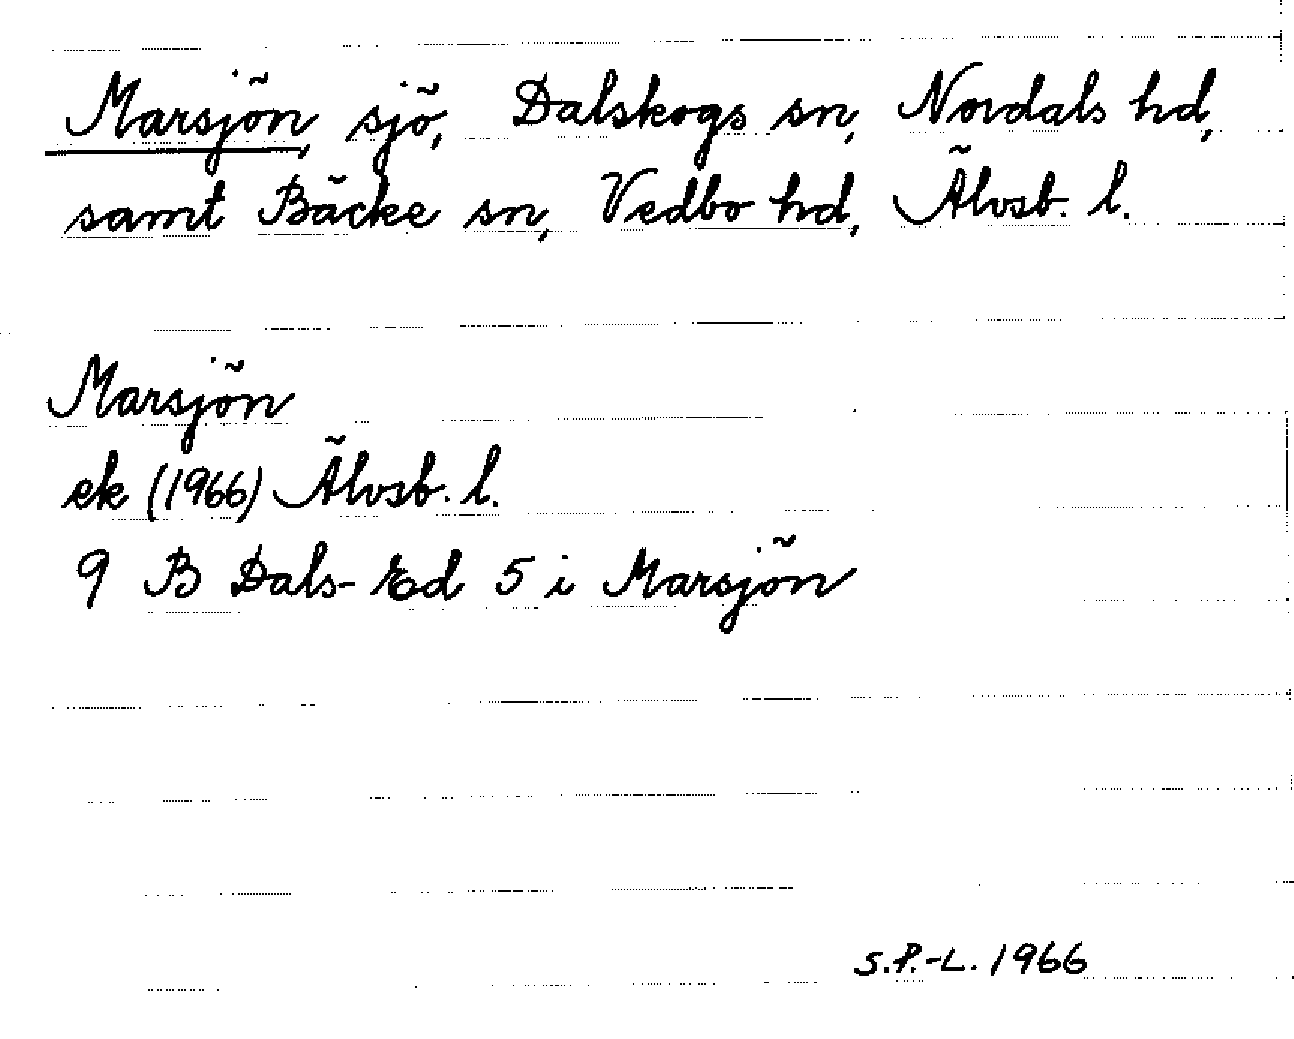 Marsjön, sjö, Dalskogs sn, Nordals hd,
samt Bäcke sn, Vedbo hd, Älvsb. l.
Marsjön
ek (1966) Älvsb. l.
9 B Dals-Ed 5 i Marsjön
S.P.-L. 1966